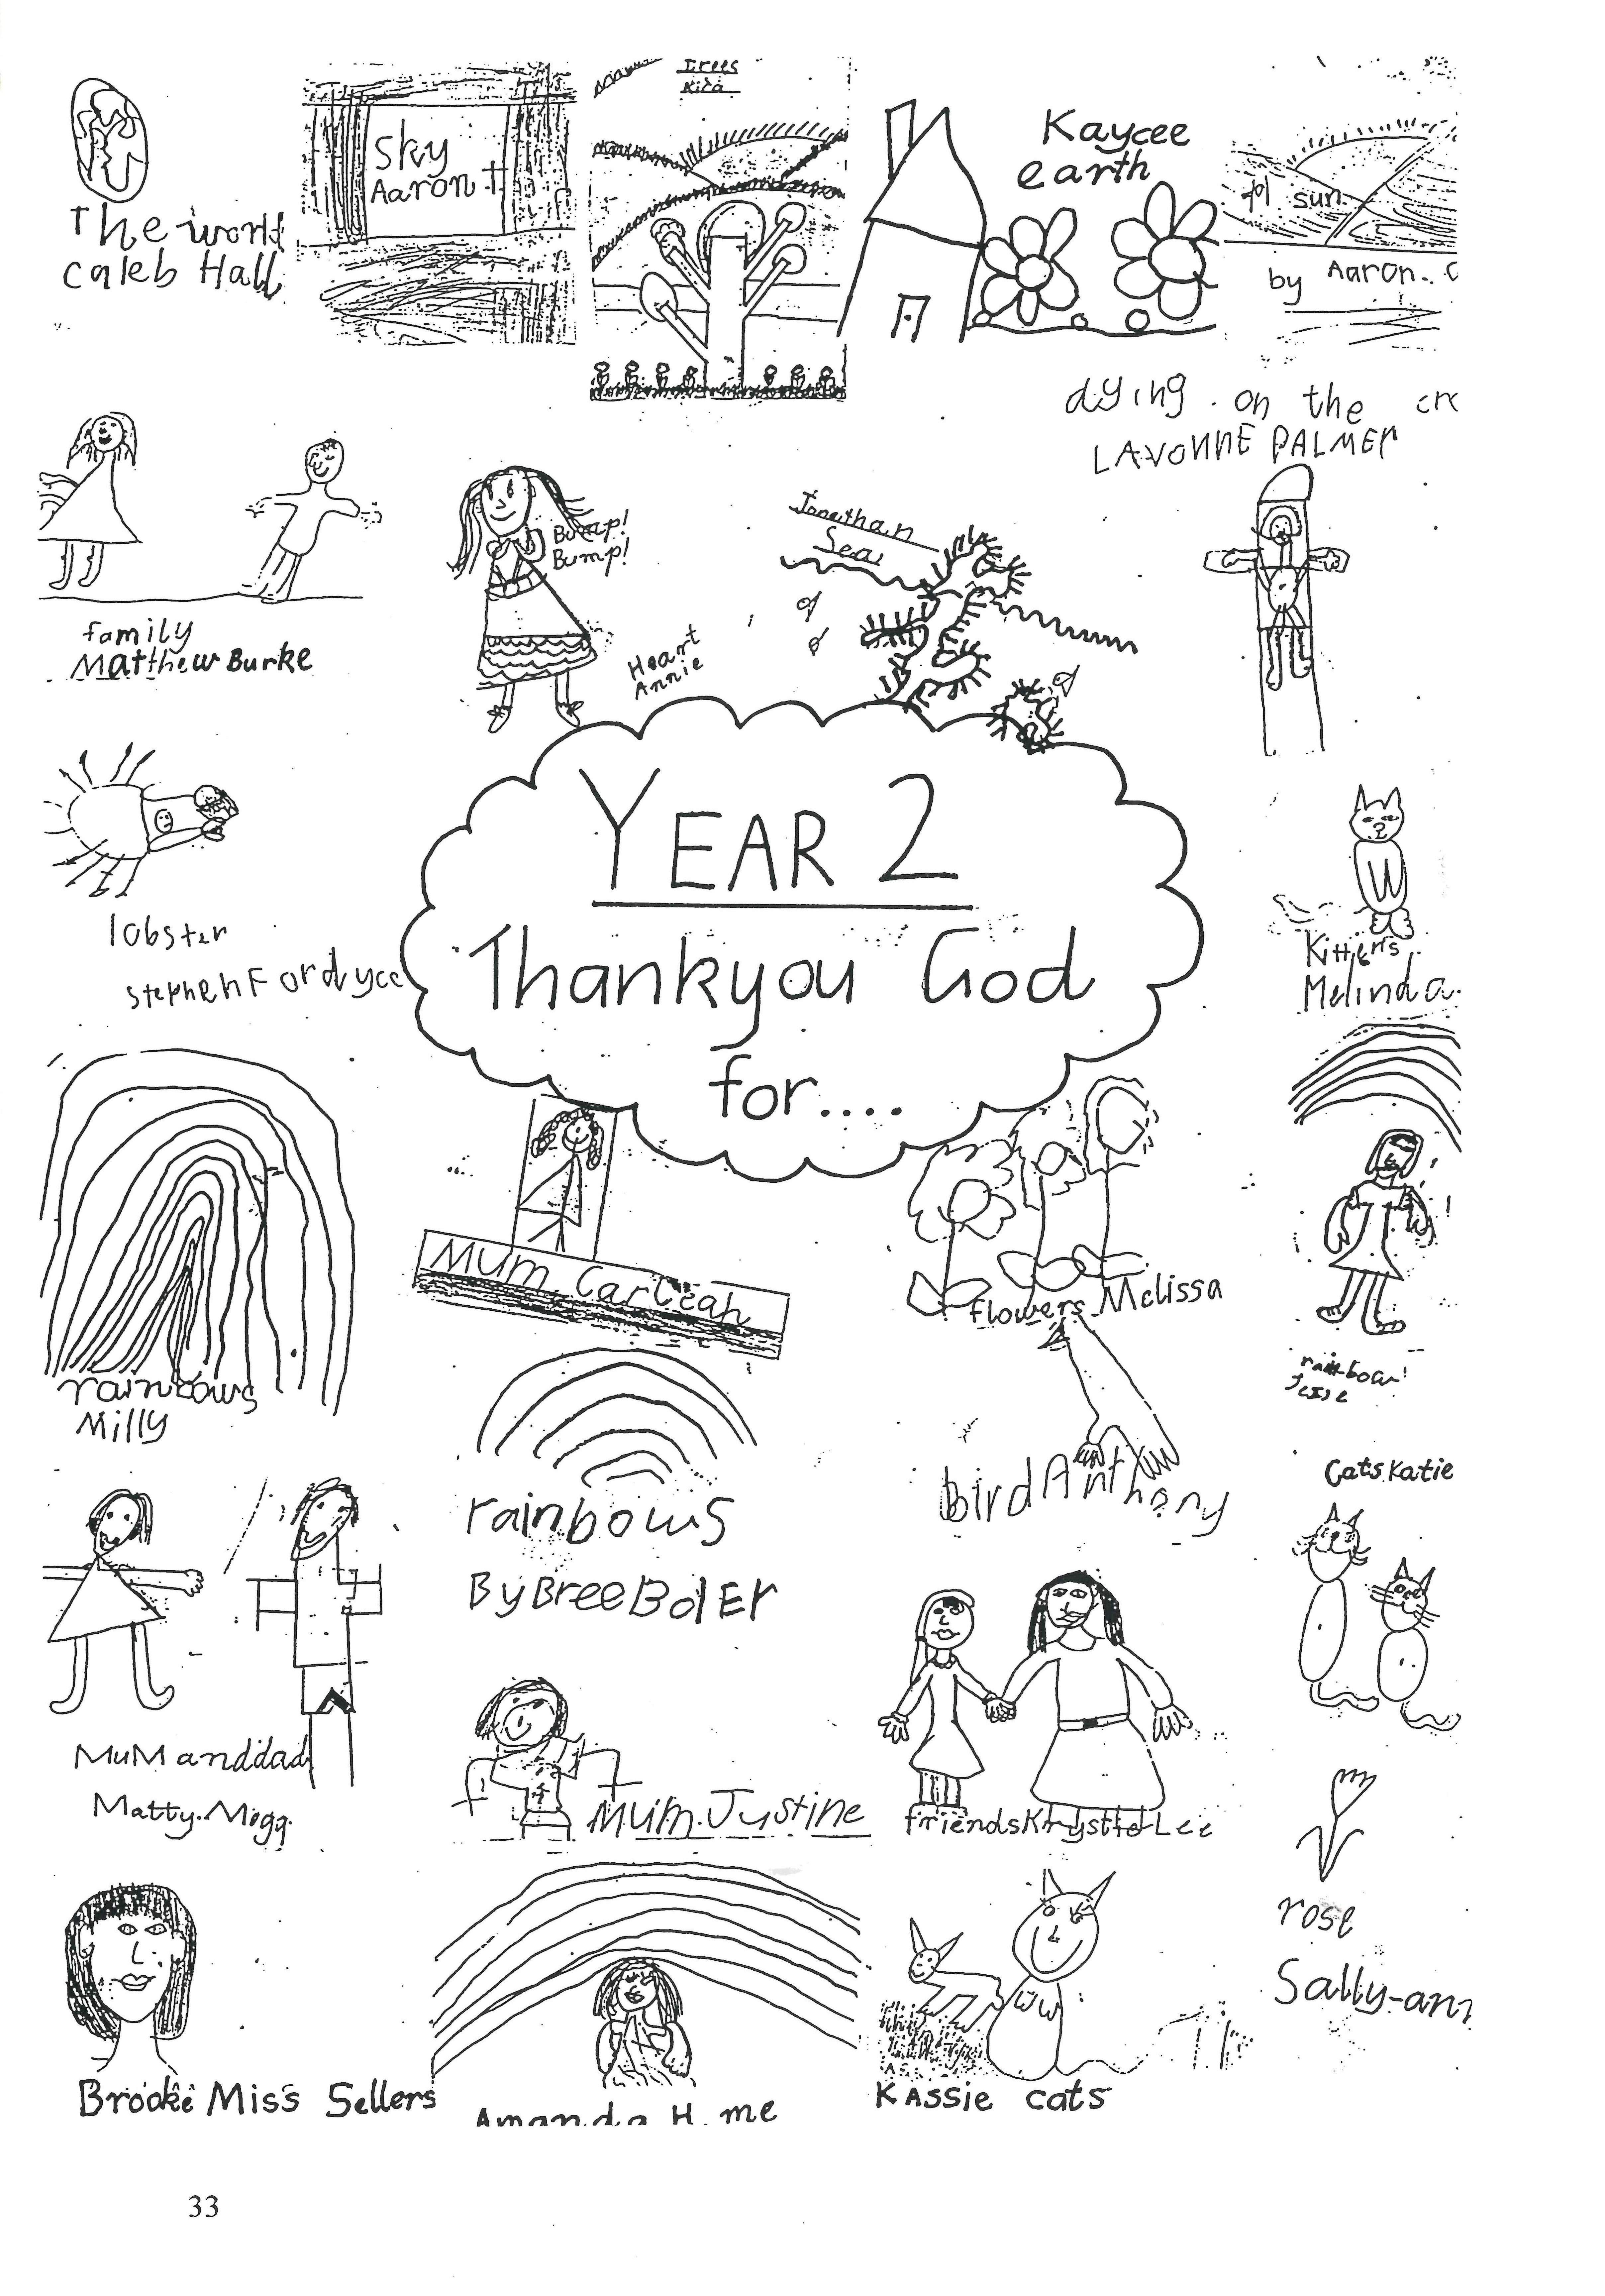 The world
Caleb Hall
Sky
Aaron T
Trees
Kaycee
earth
sun
by Aaron. C
dying on the
LAVONNE PALMER
family
Matthew Burke
Bump!
Bump!
Heart
Annie
Jonathan
Sea
lobster
stephen Fordyce
YEAR 2
Thankyou God
for....
Kittens
Melinda.
rainbows
Milly
Mum. Carleah
flowers Melissa
rainbow
bird Anthony
rainbows
By Bree Boler
Cats Katie
MuM and dad
Matty. Mogg
Mum. Justine
friends Krystle Lee
rose
Sally-ann
Brooke Miss Sellers
Amanda H. me
Kassie cats
33